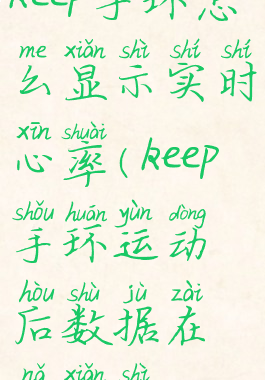 keep手环怎
me xiǎn shì shí shí
么显示实时
xīn shuài
心率(keep
shǒu huán yùn dòng
手环运动
hòu shù jù zài
后数据在
nǎ xiǎn shì